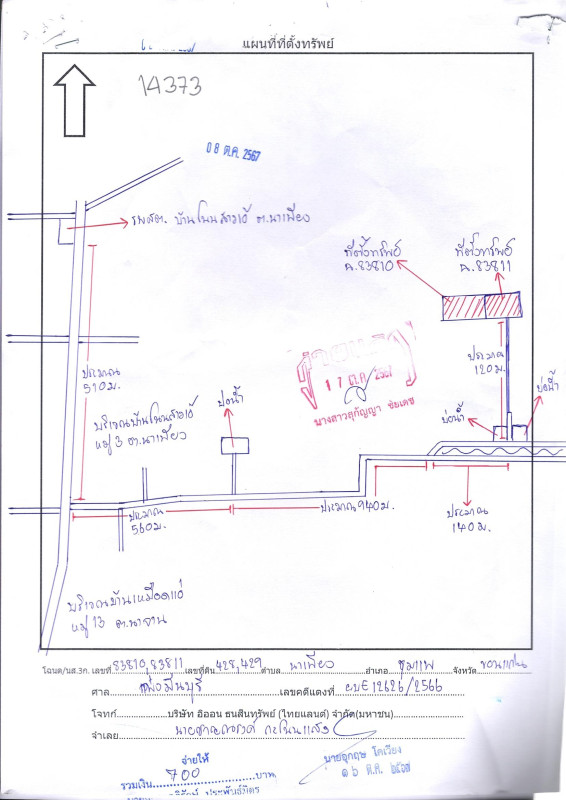 แผนที่ที่ตั้งทรัพย์
14373
08 ต.ค. 2567
รพสต. บ้านโนนสาวเอ้ ต.นาเพียง
ที่ตั้งทรัพย์
ฉ.83810
ที่ตั้งทรัพย์
ฉ.83811
ประมาณ
510 ม.
ประมาณ
120 ม.
17 ต.ค. 2567
นางสาวสุกัญญา
บ่อน้ำ
บ่อน้ำ
บ่อน้ำ
บริเวณบ้านโนนสาวเอ้
หมู่ 3 ต.นาเพียง
ประมาณ
560 ม.
ประมาณ 940 ม.
ประมาณ
140 ม.
บริเวณบ้านเหมือดแอ่
หมู่ 13 ต.นาจาน
โฉนด/นส.3ก. เลขที่ 83810,83811 เลขที่ดิน 428,429 ตำบล นาเพียง อำเภอ ชุมแพ จังหวัด ขอนแก่น
ศาล แพ่งมีนบุรี เลขคดีแดงที่ ผบE12626/2566
โจทก์ บริษัท อิออน ธนสินทรัพย์ (ไทยแลนด์) จำกัด(มหาชน)
จำเลย
จ่ายให้
รวมเงิน 700 บาท
นายอุกฤษ โคเวียง
๑๖ ต.ค. ๒๕๖๗